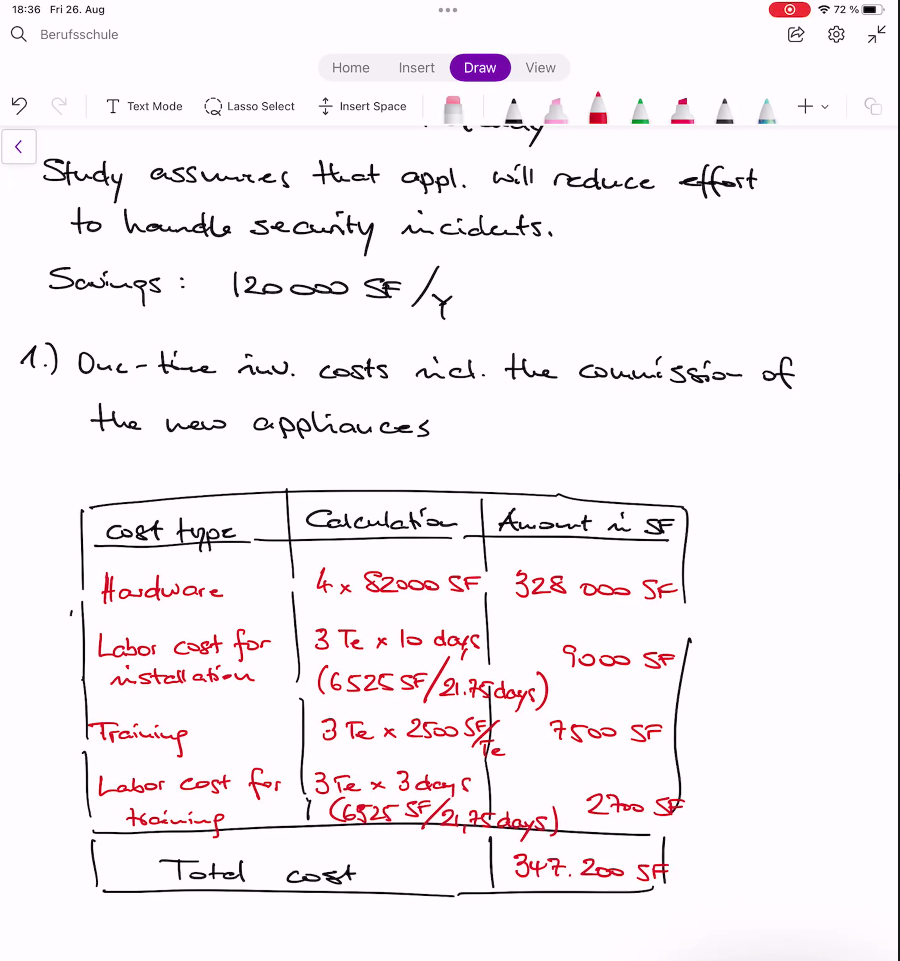 18:36 Fri 26. Aug
72 %
Berufsschule
Home Insert Draw View
Text Mode Lasso Select Insert Space
Study assumes that appl. will reduce effort
to handle security incidents.
Savings : 120 000 SF / Y
1.) One-time inv. costs incl. the commission of
the new appliances
cost type Calculation Amount in SF
Hardware 4 x 82000 SF 328 000 SF
Labor cost for 3 Te x 10 days
installation (6525 SF/21.75 days) 9000 SF
Training 3 Te x 2500 SF/Te 7500 SF
Labor cost for 3 Te x 3 days
training (6525 SF/21,75 days) 2700 SF
Total cost 347.200 SF